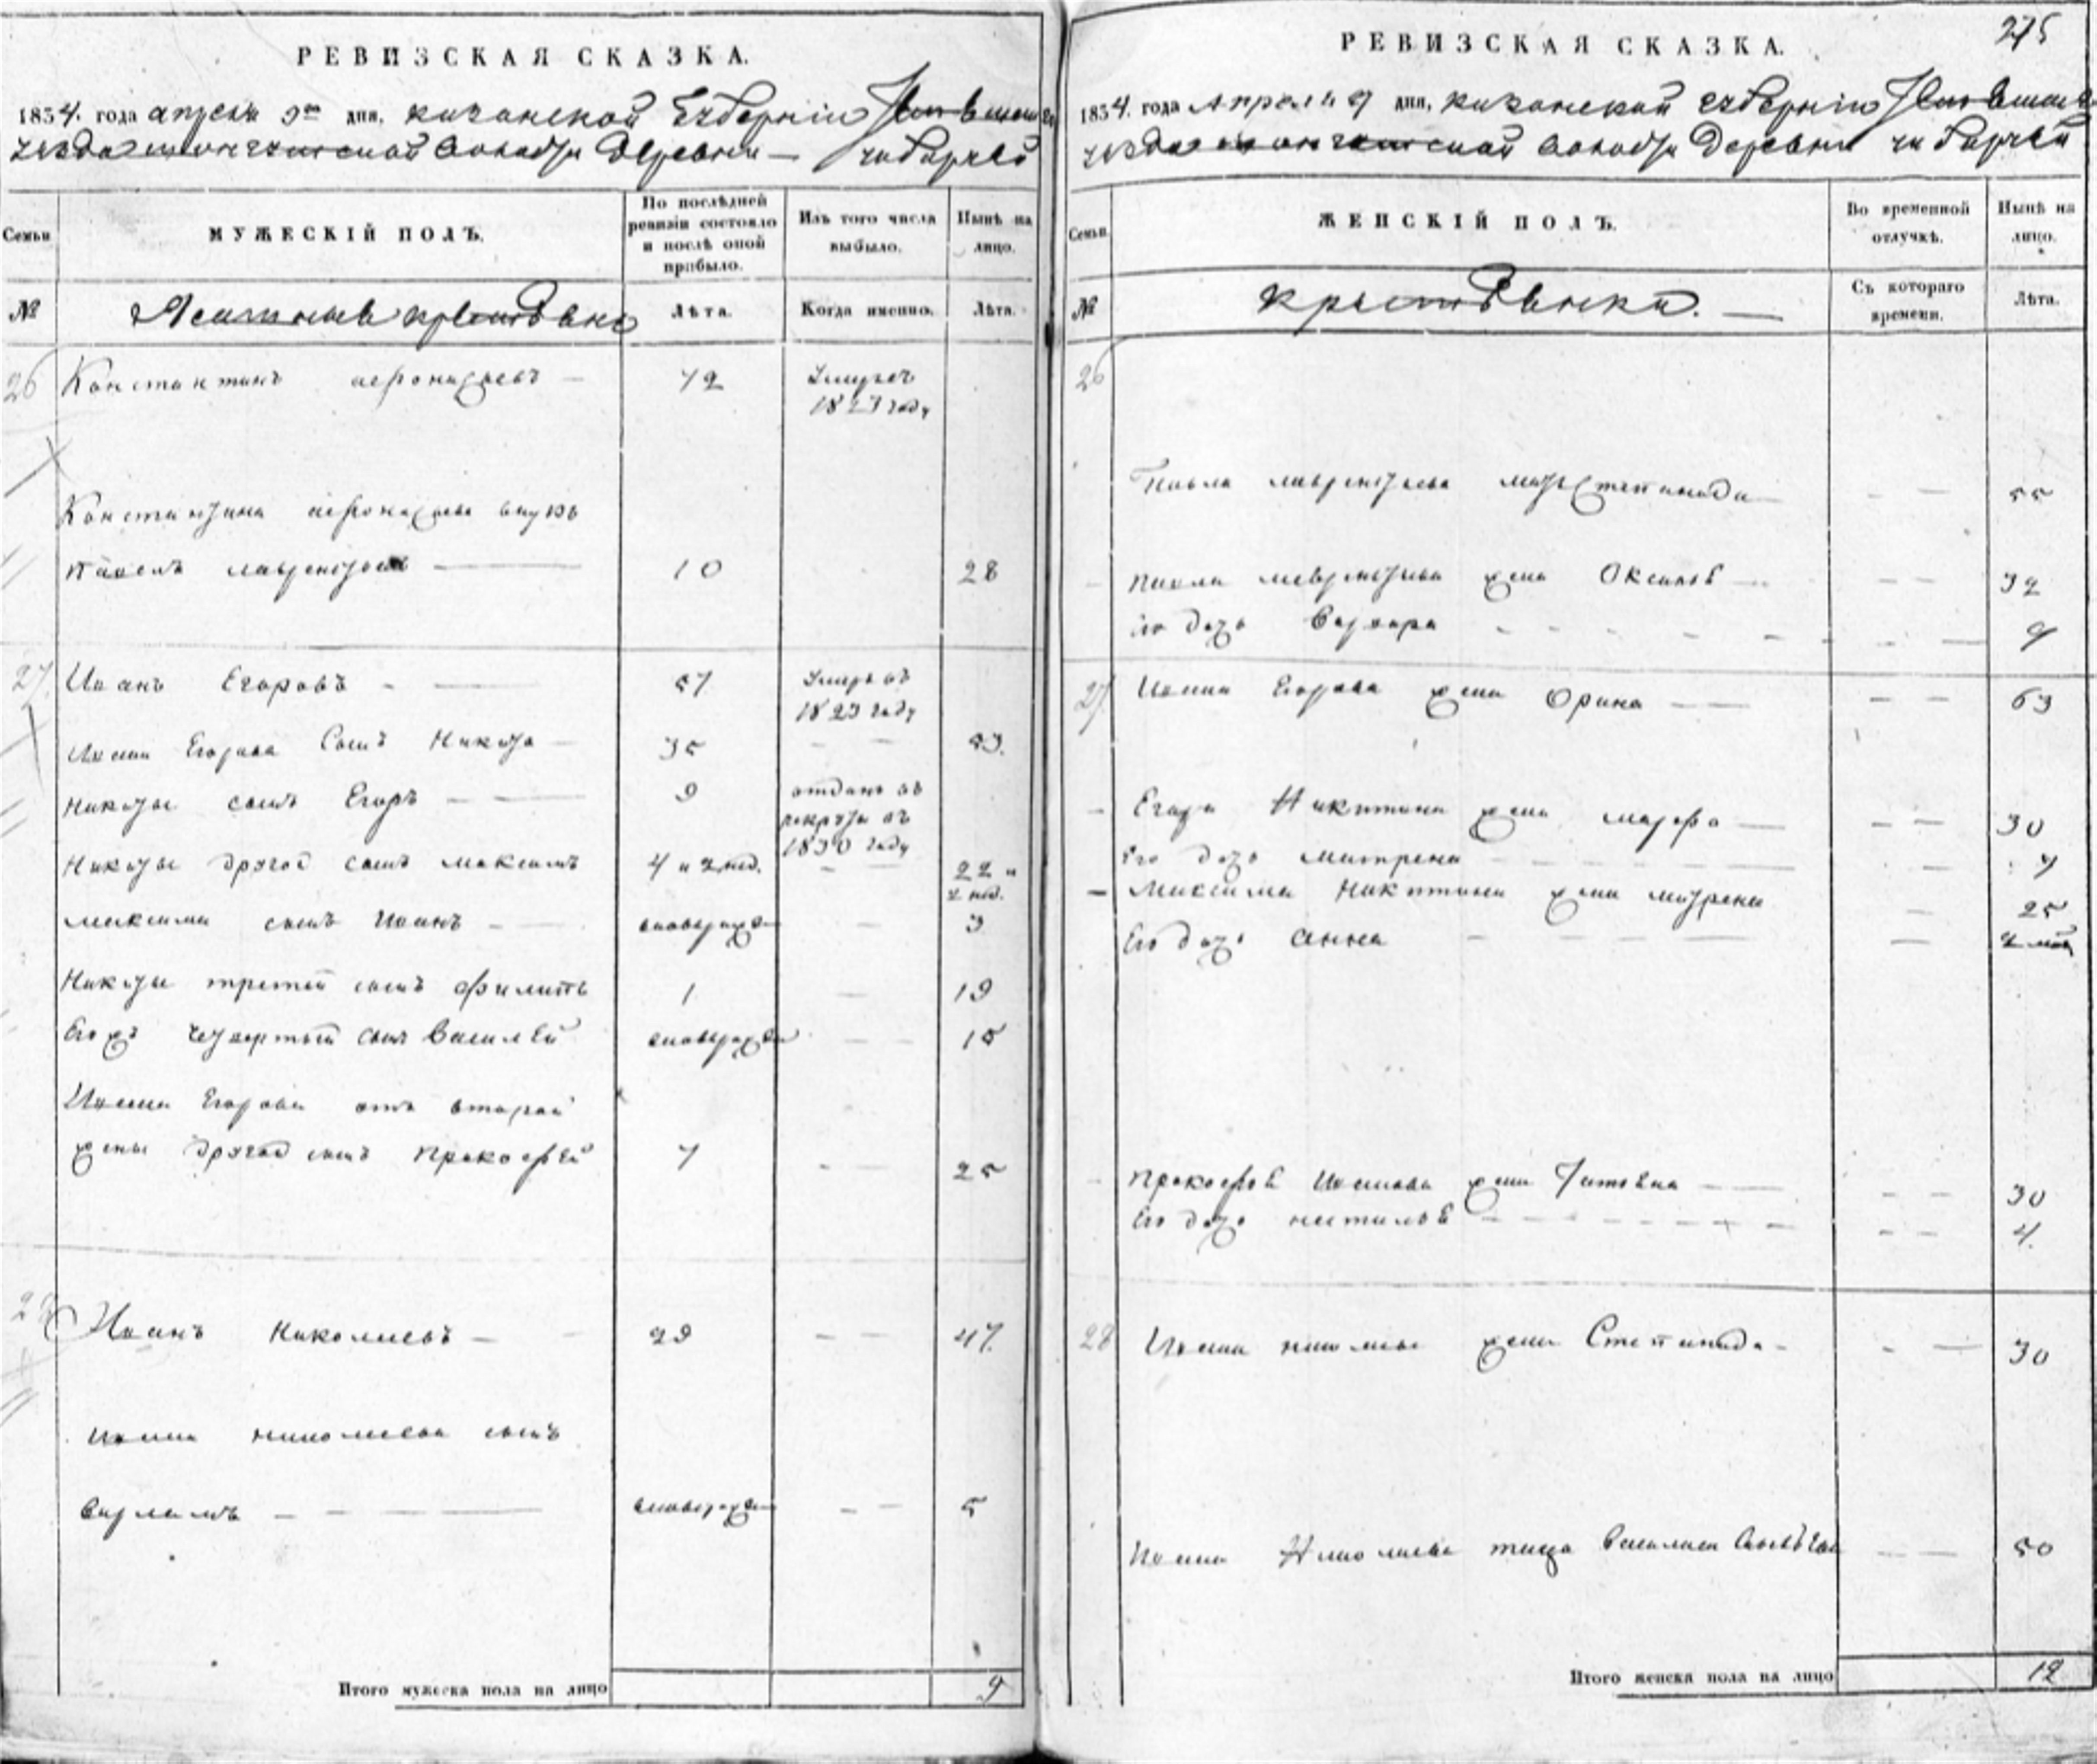 РЕВИЗСКАЯ СКАЗКА.
1834. года апреля 9го дня, казанской Губернiи
уезда волости Деревни —
Семьи
МУЖЕСКIЙ ПОЛЪ.
По послѣдней ревизiи состояло и послѣ оной прибыло.
Изъ того числа выбыло.
Нынѣ на лицо.
№
Ясашныя крестьяне
Лѣта.
Когда именно.
Лѣта.
26 Константинъ — 72 Умреъ 1823 году
Константина внукъ
Павелъ лаврентьевъ — 10 28
27. Иванъ Егоровъ - — 57 Умръ въ 1823 году
Ивана Егорова Сынъ Никита — 35 — — 53.
Никиты сынъ Егоръ — — 9 отданъ въ рекруты въ 1830 году
Никиты другой сынъ максимъ 4 и 2 нед. — — 22 и 2 нед.
максима сынъ Иванъ - — вновьрожден — 3
Никиты третей сынъ филипъ 1 — 19
Егожъ четвертый сынъ Василей вновьрожден — — 15
Ивана Егорова отъ второй
жены другой сынъ Прокофей 7 - — 25
28 Иванъ Николаевъ — — 29 — — 47.
Ивана николаева сынъ
варламъ — — — вновьрожден — — 5
Итого мужеска пола на лицо 9
275
РЕВИЗСКАЯ СКАЗКА.
1834. года Апреля 9 дня, казанской губернiи
уезда волости Деревни
Семьи.
ЖЕНСКIЙ ПОЛЪ.
Во временной отлучкѣ.
Нынѣ на лицо.
№
крестьянки. —
Съ котораго времени.
Лѣта.
26
Павла лаврентьева мать Степанида — - — 55
павла лаврентьева жена Оксинья — — — 32
Его дочь Варвара - - - - — — 9
27 Ивана Егорова жена Орина — — — — 63
— Егора Никитина жена марфа — — — 30
Его дочь матрена — — — 7
— Максима Никитина жена матрена — 25
Его дочь анна — — — — —
- Прокофья Иванова жена — — - — 30
Его дочь наталья — - - - - - — — 4.
28 Ивана жена Степанида - - — 30
Ивана Николаева теща Василиса — — 50
Итого женска пола на лицо 12